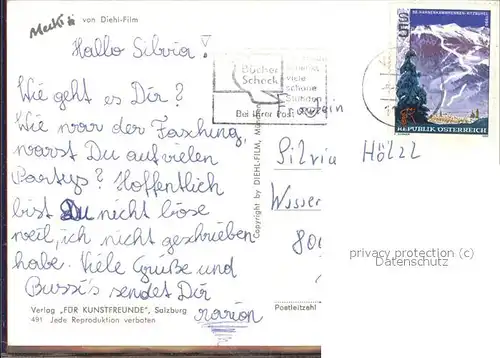 Mecki
von Diehl-Film
Hallo Silvia!
Wie geht es Dir?
Wie war der Fasching,
warst Du auf vielen
Partys? Hoffentlich
bist Du nicht böse
weil, ich nicht geschrieben
habe. Viele Grüße und
Bussi's sendet Dir
Marion
Verlag „FÜR KUNSTFREUNDE", Salzburg
491 Jede Reproduktion verboten
Copyright by DIEHL-FILM, München
Bücher
Scheck
viele
schöne
Stunden
Bei Ihrer Post
REPUBLIK ÖSTERREICH
Fräulein
Silvia Hölzl
Wasser
800
Postleitzahl
privacy protection (c)
Datenschutz